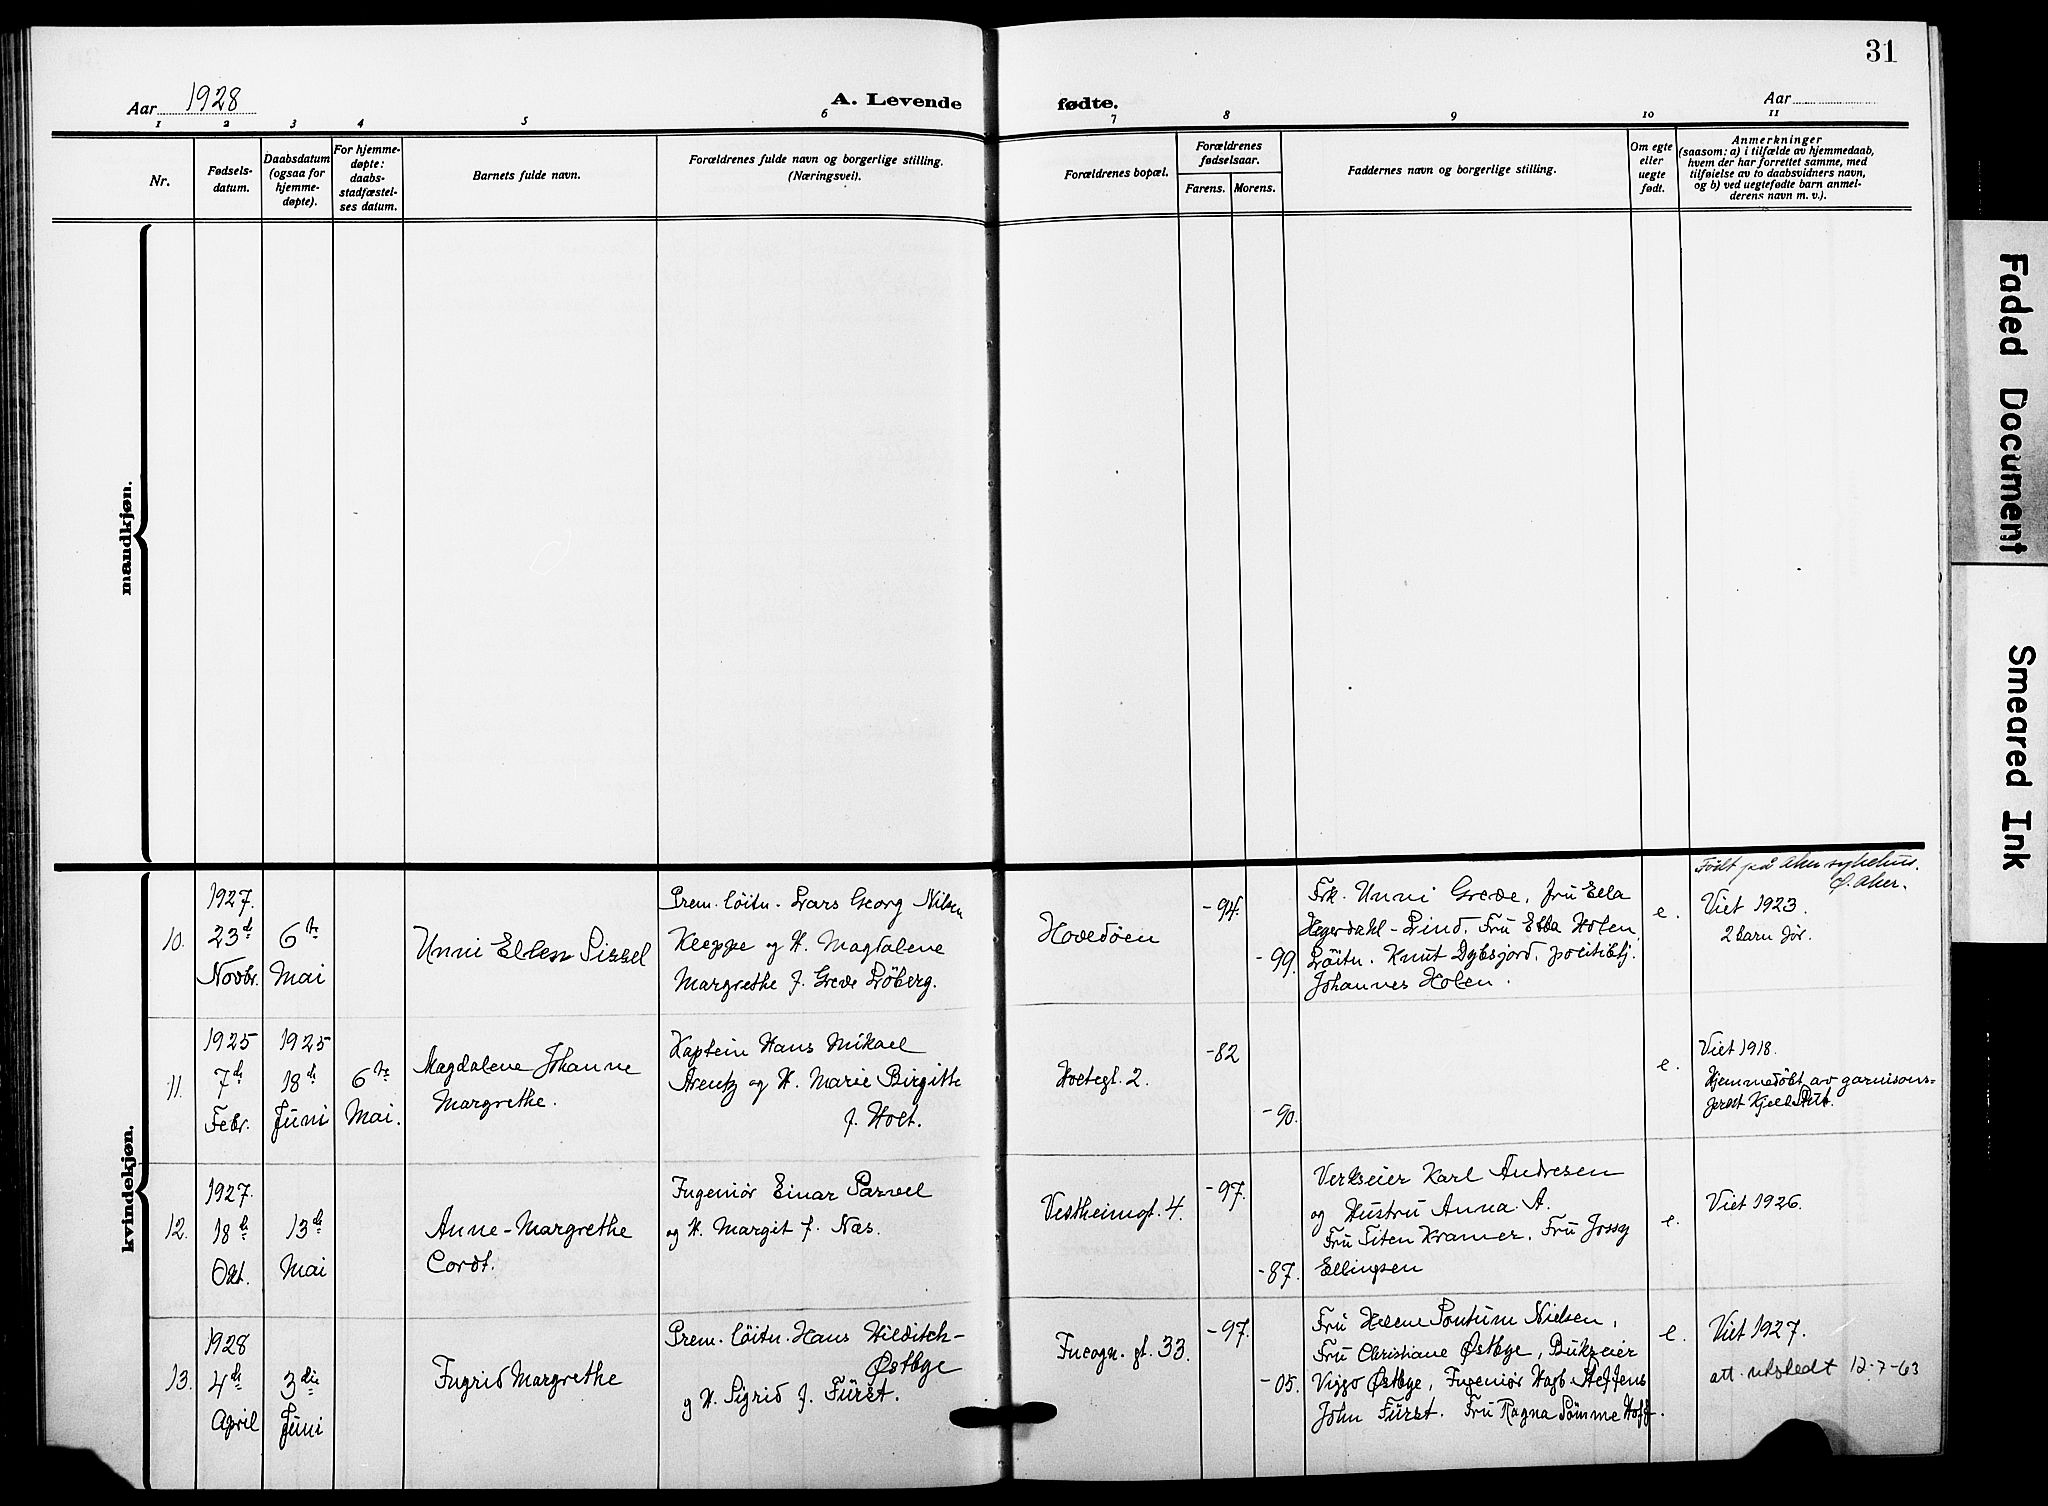 31
Aar 1928
A. Levende fødte.
Aar
1 2 3 4 5 6 7 8 9 10 11
Nr.
Fødsels-
datum.
Daabsdatum
(ogsaa for
hjemme-
døpte).
For hjemme-
døpte:
daabs-
stadfæstel-
ses datum.
Barnets fulde navn.
Forældrenes fulde navn og borgerlige stilling.
(Næringsvei).
Forældrenes bopæl.
Forældrenes
fødselsaar.
Farens. Morens.
Faddernes navn og borgerlige stilling.
Om egte
eller
uegte
født.
Anmerkninger
(saasom: a) i tilfælde av hjemmedaab,
hvem der har forrettet samme, med
tilføielse av to daabsvidners navn,
og b) ved uegtefødte barn anmel-
derens navn m. v.).
mandkjøn.
kvindekjøn.
10.
1927.
23d
Novbr.
6te
Mai
Unni Ellen Sissel
Prem. löitn. Lars Georg Nilsen
Kleppe og H. Magdalene
Margrethe f. Grede Löberg.
Hovedöen
-94.
-99.
Frk. Unni Grede, Fru Ella
Hegerdahl-Lind. Fru Ebba Holen,
Löitn. Knut Dybsjord, politibtj.
Johannes Holen.
e.
Födt på Aker sykehus.
Ö. Aker.
Viet 1923.
2 barn för.
11.
1925
7de
Febr.
1925
18de
Juni
6te
Mai.
Magdalena Johanne
Margrethe.
Kaptein Hans Mikael
Arentz og H. Marie Birgitte
f. Holt.
Holtegt. 2.
-82
-90.
e.
Viet 1918.
Hjemmedöbt av garnisons-
prest Kjell
12.
1927.
18de
Okt.
13de
Mai
Anne-Margrethe
Cordt.
Ingeniör Einar Parvel
og H. Margit f. Næs.
Vestheimgt. 4.
-97.
-87.
Verkseier Karl Andresen
og Hustru Anna A.
Fru Titen Kramer, Fru Jossy
Ellingsen
e.
Viet 1926.
13.
1928
4de
April
3die
Juni
Ingrid Margrethe
Prem. löitn. Hans Hilditch-
Østbye
og H. Sigrid f. Fürst.
Incogn. gt. 33.
-97.
-05.
Fru Helene Pontum Nielsen,
Fru Christiane Østbye, Bukseier
Viggo Østbye, Ingeniör Hagb. Steffens
John Fürst. Fru Ragna Sömme Hoff.
e.
Viet 1927.
att. utstedt 12-7-63
Faded Document
Smeared Ink